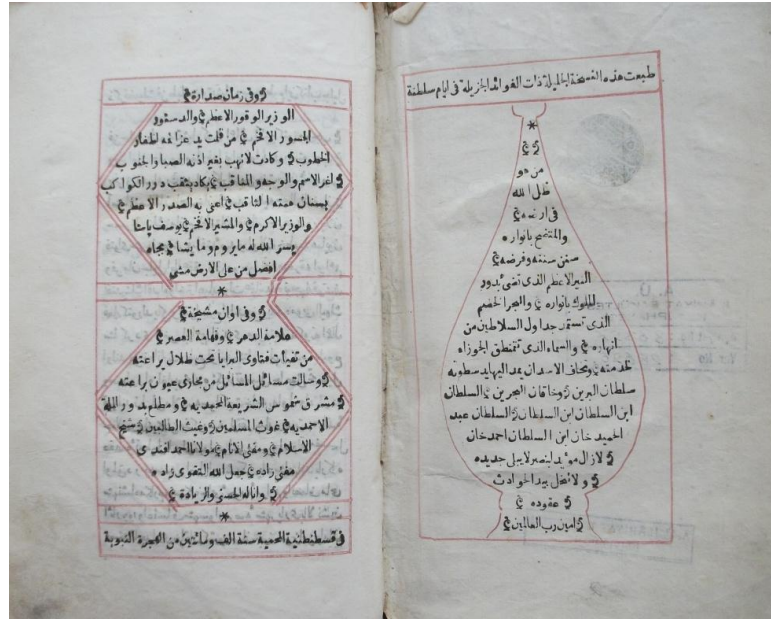 طبعت هذه النسخة الجليلة ذات الفوائد الجزيلة فى ايام سلطنة
*
من هو
ظل الله
فى ارضه
والمتضح بانواره
سنن سننه وفرضه
النير الاعظم الذى تضئ بدور
الملوك بانواره والبحر الخضم
الذى تستمد جداول السلاطين من
انهاره والسماء الذى تتمنطق الجوزاء
لخدمته وتخاف الاسد ان يمد اليها يد سطوته
سلطان البرين وخاقان البحرين السلطان
ابن السلطان ابن السلطان السلطان عبد
الحميد خان ابن السلطان احمد خان
لا زال مؤيدا بنصر لا يبلى جديده
ولا تنحل بيد الحوادث
عقوده
امين رب العالمين
وفى زمان صدارة
الوزير الوقور الاعظم والدستور
الجسور الافخم من قلت يد عزائمه اظفار
الخطوب وكادت لا تهب بغير اذنه الصبا والجنوب
اغر الاسم والوجه والمناقب يكاد يثقب درر الكواكب
بسنان همته الثاقب اعنى به الصدر الاعظم
والوزير الاكرم والمشير الافخم يوسف پاشا
يسر الله له ما يروم وما يشا بجاه
افضل من على الارض مشى
*
وفى اوان مشيخة
علامة الدهر وفهامة العصر
من تفيأت فتاوى البرايا تحت ظلال يراعته
وسالت مسائل المسائل من مجارى عيون براعته
مشرق شموس الشريعة المحمدية ومطلع بدور الملة
الاحمدية غوث المسلمين وغيث الطالبين شيخ
الاسلام ومفتى الانام مولانا احمد افندى
مفتى زاده جعل الله التقوى زاده
واناله الحسنى والزيادة
*
فى قسطنطنية المحمية سنة الف ومائتين من الهجرة النبوية